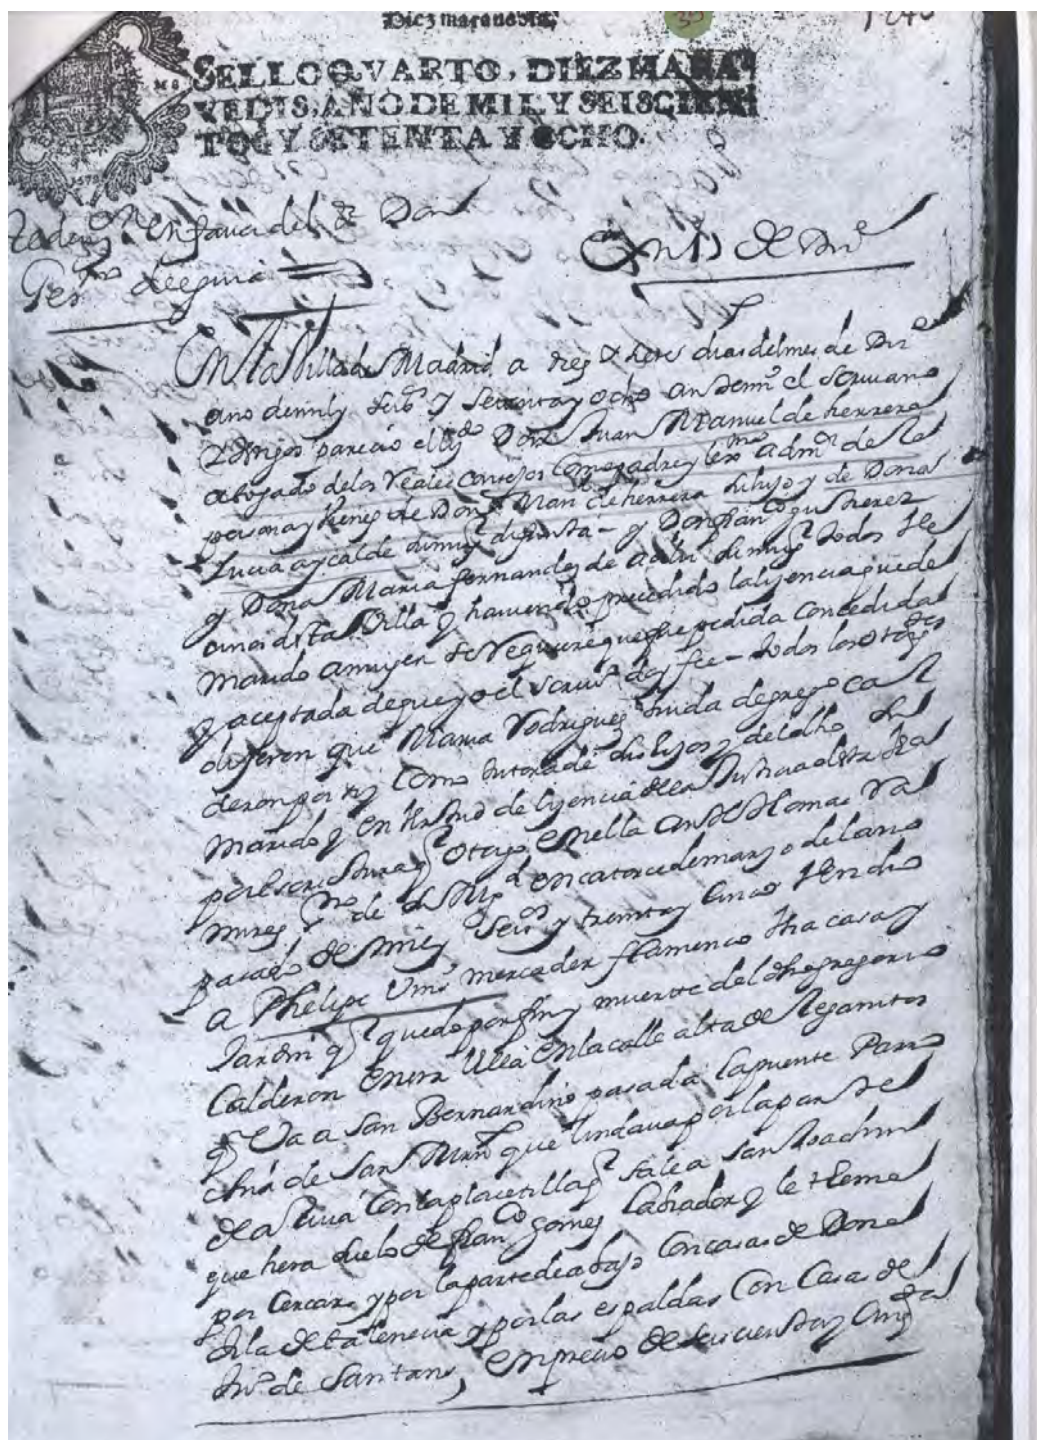 Diez maravedis.
SELLO QVARTO, DIEZ MARA
VEDIS, AÑO DE MIL Y SEISCIEN
TOS Y SETENTA Y OCHO.
En favor del Sr Don
En 17 de Dre
En la Villa de Madrid a diez y siete dias del mes de Dre
año de mil y seisos y setenta y ocho ante mi el scriuano
y testigos parecio el Ldo Don Juan Manuel de herrera
abogado de los Reales consejos como padre y lexmo admor de la
persona y vienes de Don Juan de herrera su hijo y de Doña
Lucia aycalde su muger difunta - y Don franco gutierrez
y Doña Maria fernandez de su muger todos Ve
cinos desta Villa y hauiendo precedido la lizencia que de
marido a muger se requiere que fue pedida concedida
y aceptada de que yo el scriuo doy fee - todos los otorgtes
dijeron que Maria Rodriguez viuda de grego cal
deron por si y como tutora de sus hijos y del dho su
marido y en virtud de lizencia de la Justicia desta Va
por escriptura q otorgo en ella ante Thomas
no de su Mgd en catorce de marzo del año
pasado de mil y seisos y treinta y cinco Vendio
a Phelipe mercader flamenco Vna casa y
Jardin q quedo por fin y muerte del dho gregorio
Calderon en esta Villa en la calle alta de Leganitos
q Va a San Bernardino pasada la puente Parro
chia de San Mrn que lindaua por la parte
de arriua con la placetilla q sale a San Joachin
que hera suelo de franco Gomez Labrador y le tiene
por cercar y por la parte de abajo con casas de Doña
de Valencia y por las espaldas con casas de
Juo de Santana, en precio de